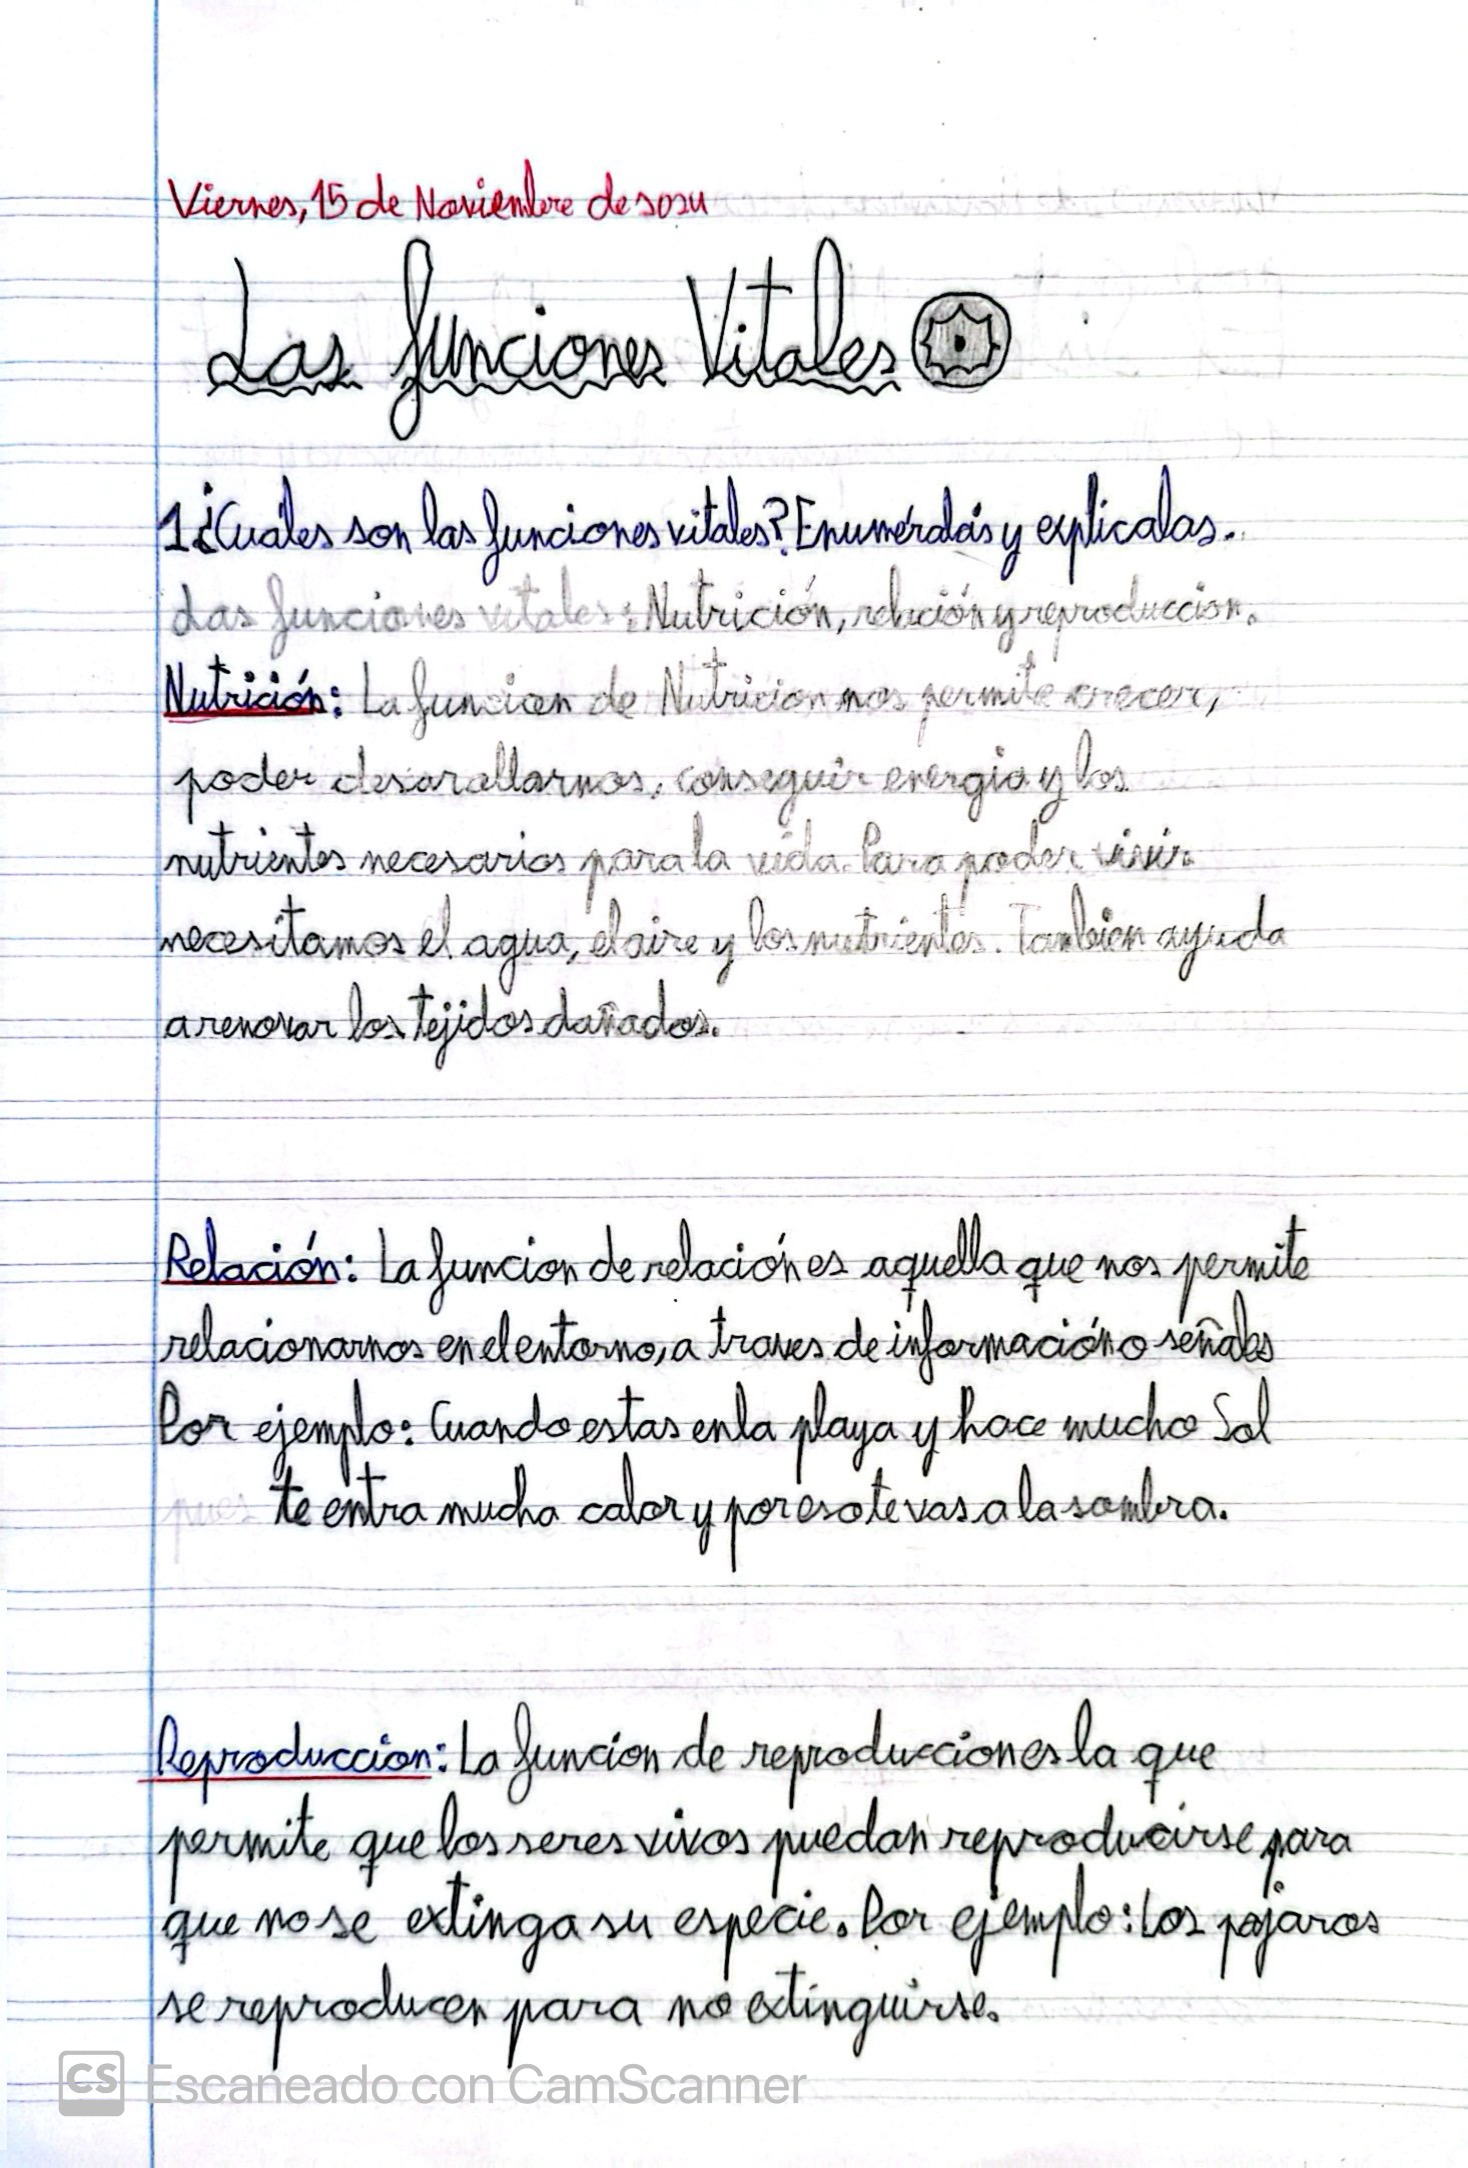 Viernes, 15 de Noviembre de 2024
Las funciones Vitales
1 ¿Cuáles son las funciones vitales? Enuméralás y explícalas.
Las funciones vitales: Nutrición, relación y reproduccion.
Nutrición: La funcion de Nutricion nos permite crecer,
poder desarallarnos, conseguir energia y los
nutrientes necesarios para la vida. Para poder vivir
necesitamos el agua, el aire y los nutrientes. Tambien ayuda
a renovar los tejidos dañados.
Relación: La funcion de relación es aquella que nos permite
relacionarnos en el entorno, a traves de información o señales
Por ejemplo: Cuando estas en la playa y hace mucho Sol
pues te entra mucha calor y por eso te vas a la sombra.
Reproduccion: La funcion de reproduccion es la que
permite que los seres vivos puedan reproducirse para
que no se extinga su especie. Por ejemplo: Los pajaros
se reproducen para no extinguirse.
CS Escaneado con CamScanner